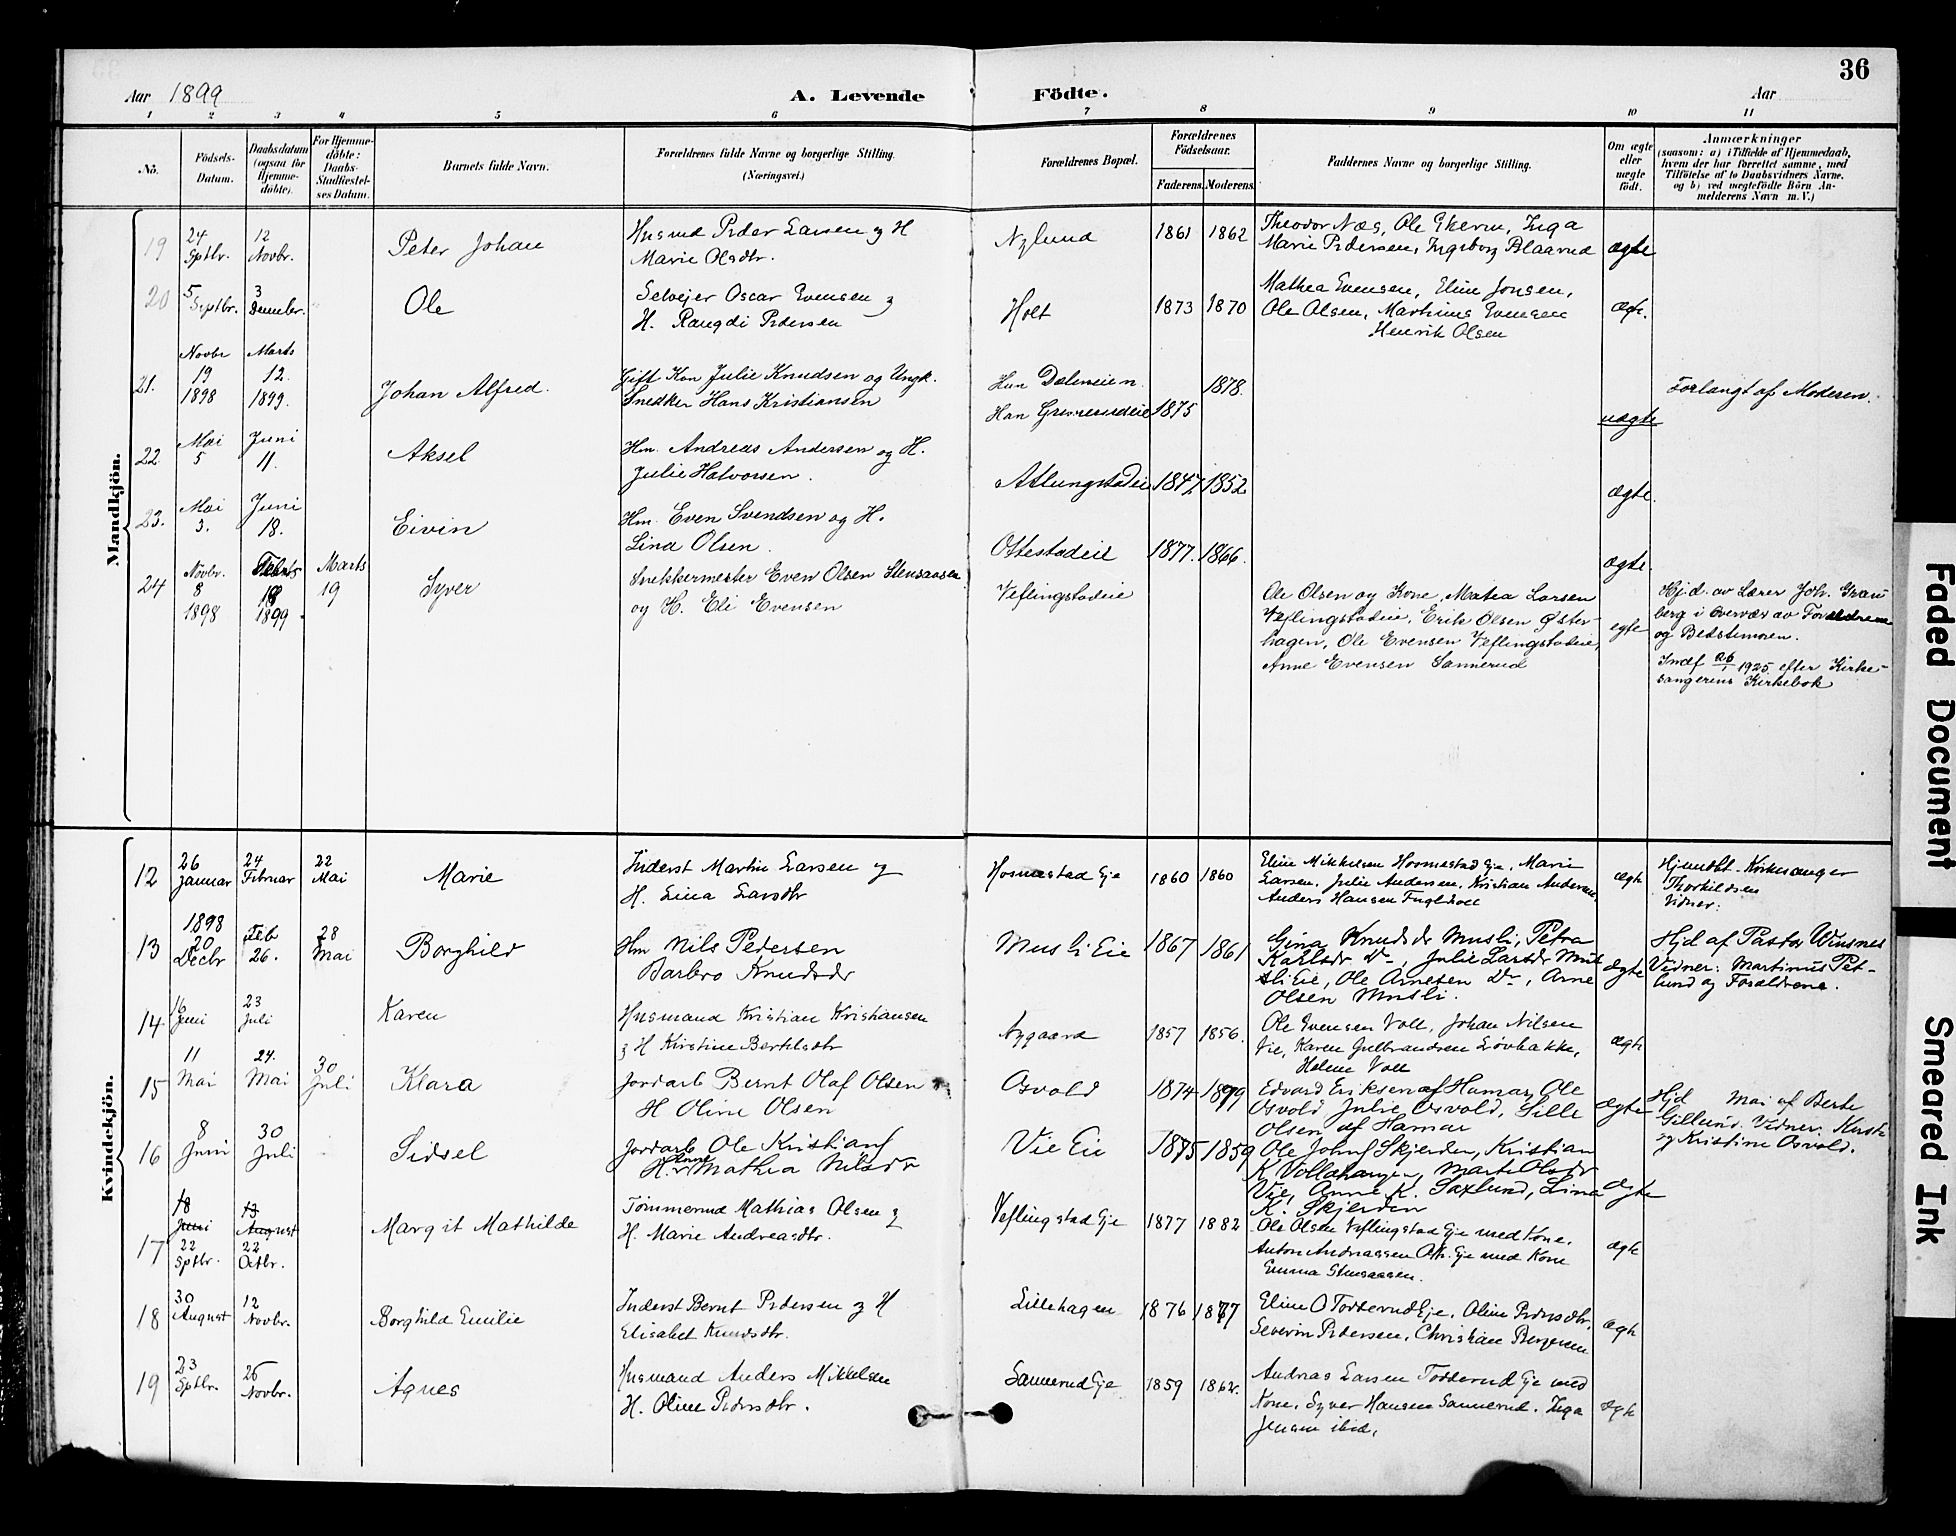 36
Aar 1899
A. Levende Födte.
Aar
1 2 3 4 5 6 7 8 9 10 11
No.
Födsels-
Datum.
Daabsdatum
(ogsaa for
Hjemme-
döbte).
For Hjemme-
döbte:
Daabs-
Stadfæstel-
ses Datum.
Barnets fulde Navn.
Forældrenes fulde Navne og borgerlige Stilling.
(Næringsvei.)
Forældrenes Bopæl.
Forældrenes
Födselsaar.
Faderens. Moderens.
Faddernes Navne og borgerlige Stilling.
Om ægte
eller
uægte
födt.
Anmærkninger
(saasom: a) i Tilfælde af Hjemmedaab,
hvem der har forrettet samme, med
Tilföielse af to Daabsvidners Navne.
og b) ved uægtefödte Börn An-
melderens Navn m. V.)
Mandkjön.
19
24
Sptbr.
12
Novbr.
Peter Johan
Husmd Peder Larsen og H
Marie Olsdtr.
Nylund
1861 1862
Theodor Næs, Ole Ekern, Inga
Marie Pedersen, Ingeborg Blaarud
ægte
20
5
Septbr.
3
Decembr.
Ole
Selvejer Oscar Evensen og
H. Rangdi Pedersen
Holt
1873 1870
Mathea Evensen, Eline Jonsen,
Ole Olsen, Marthinus Evensen
Henrik Olsen
ægt.
21.
Novbr
19
1898
Marts
12.
1899.
Johan Alfred.
Gift Kon Julie Knudsen og Ungk.
Snedker Hans Kristiansen
Hun Dalsveien
Han
1875
1878.
uægte
Forlangt af Moderen.
22.
Mai
5
Juni
11.
Aksel
Hm. Andreas Andersen og H.
Julie Halvorsen.
Atlungstadeie
1847 1852
ægte.
23.
Mai
3.
Juni
18.
Eivin
Hm. Even Svendsen og H.
Lina Olsen.
Ottestadeie
1877. 1866.
ægte.
24
Novbr.
8
1898
18
1899
Marts
19
Syver
Snekkermester Even Olsen Stensaasen
og H. Eli Evensen
Veflingstadeie
Ole Olsen og Kone, Matea Larsen
Veflingstadeie, Erik Olsen Øster-
hagen, Ole Evensen Veflingstadeie,
Anne Evensen Sannerud
egte
Hjd. av Lærer Joh. Gran-
berg i Overvær av Forældrene
og Bedstemoren.
Indf 26/1 1925 efter Kirke-
sangerens Kirkebok
Kvindekjön.
12
26
Januar
24
Februar
22
Mai
Marie
Inderst Martin Larsen og
H. Lina Larsdtr
Hosmestad Eje
1860 1860
Eline Mikkelsen Hosmestad Eje, Marie
Larsen, Julie Andersen, Kristian Andersen,
Anders Hansen
ægte
Hjemdbt. Kirkesanger
Thorkildsen
Vidner:
13
1898
20
Decbr
Feb
26.
28
Mai
Borghild
Hm Nils Pedersen
Barbro Knudsdr
Musli Eie
1867 1861
Gina Knudsdr Musli, Petra
Karlsdr Do, Julie Larsdr Mus
sli Eie, Ole Arnesen Do, Arne
Olsen Musli.
Ægte
Hjd af Pastor Winsnes
Vidner: Martinus Pet-
lund og Forældrene.
14
16
Juni
23
Juli
Karen
Husmand Kristian Kristiansen
og H Kirstine Bertelsdtr
Nygaard
1857 1856.
Ole Evensen Voll, Johan Nilsen
Vie, Karen Gulbrandsen Løvbakke,
Helene Voll
ægte
15
11
Mai
24.
Mai
30
Juli
Klara
Jordarb Bernt Olaf Olsen
H Oline Olsen
Osvold
1874 1879
Edvard Eriksen af Hamar, Ole
Osvold, Julie Osvold, Lille
Olsen af Hamar
Ægte
Hjd Mai af Berte
Gillund. Vidner:
og Kristine Osvold.
16
8
Juni
30
Juli
Sidsel
Jordarb Ole Kristians
H. Anne Mathea Nilsdr
Vie Ei
1875 1859
Ole Johns Skjerden, Kristian
K Vollahaugen, Marte Olsdr
Vie, Anne K. Saxlund, Lina
K. Skjerden
Ægte
17
18
Juni
22
Sptbr.
13
August
22
Octbr.
Margit Mathilde
Tømmermd Mathias Olsen og
H. Marie Andreasdtr.
Veflingstad Eje
1877 1882
Ole Olsen Veflingstad Eje med Kone.
Anton Andreassen Eje med Kone
Emma Stensaasen.
ægte
18
30
August
12
Novbr.
Borghild Emilie
Inderst Bernt Pedersen og H
Elisabet Knudsdtr.
Lillehagen
1876 1877
Eline O Toddrud Eje, Oline Pedersdtr.
Severin Pedersen, Christian Bergesen
ægte
19
23
Sptbr.
26
Novbr.
Agnes
Husmand Anders Mikkelsen
H. Oline Pedersdtr.
Sannerud Eje
1859 1862.
Andreas Larsen Toddrud Eje med
Kone, Syver Hansen Sannerud. Inga
Jensen ibid.
ægte
Faded Document
Smeared Ink